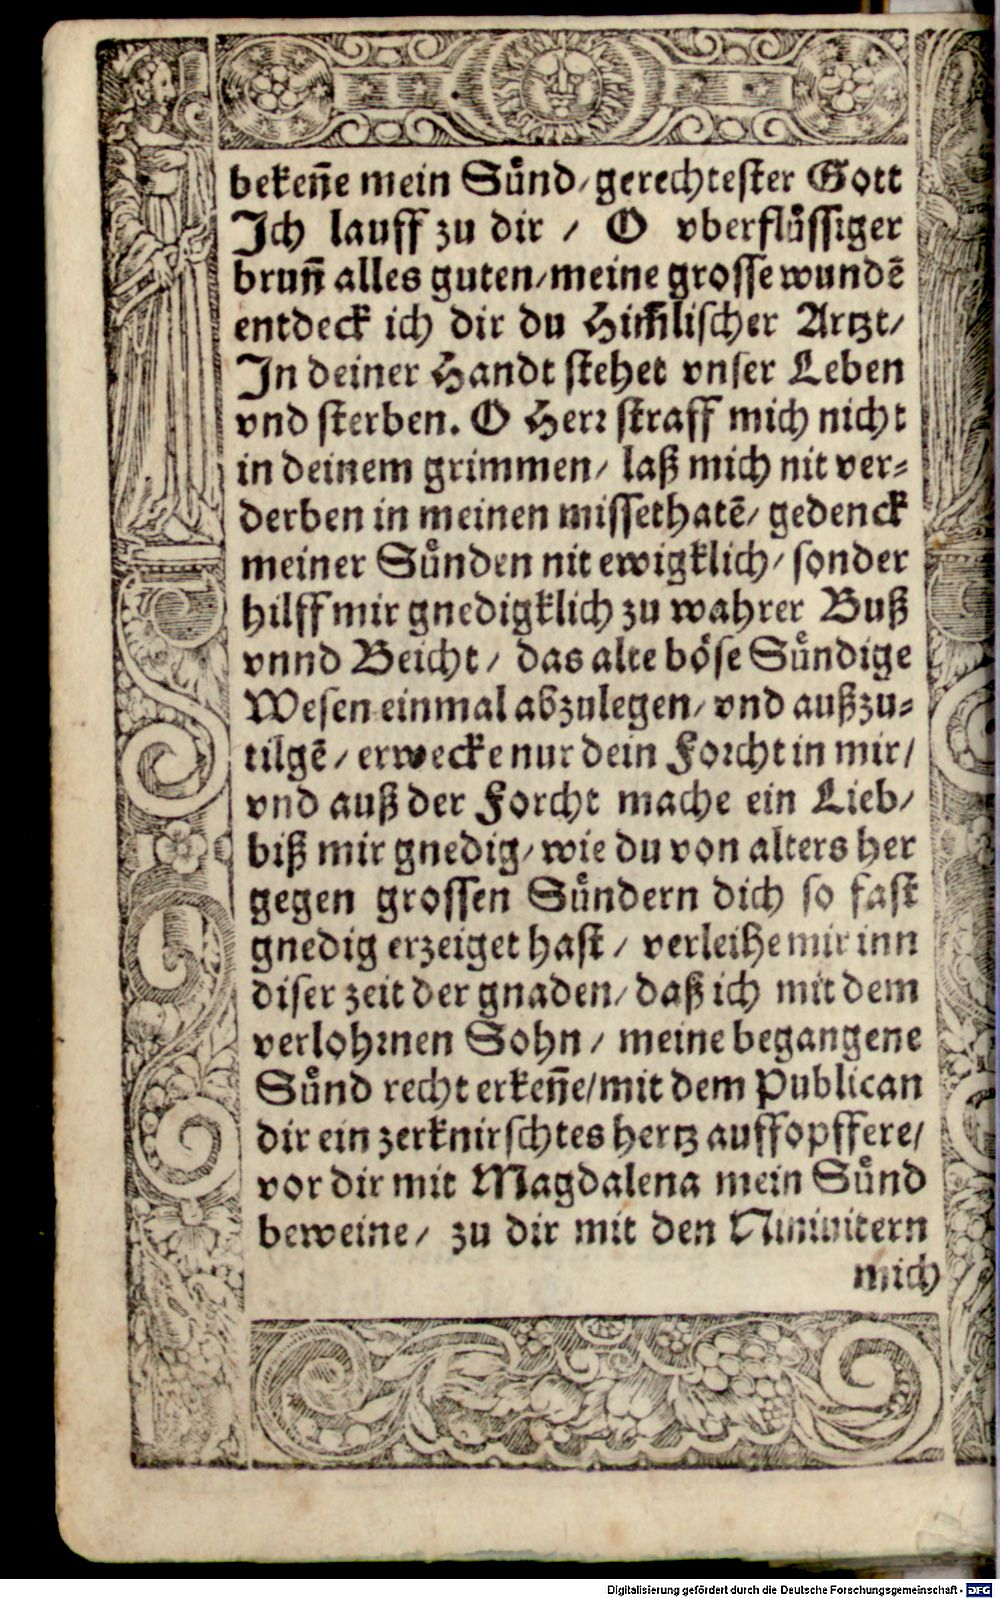 bekeñe mein Sůnd/ gerechtester Gott
Ich lauff zu dir / O vberflůssiger
brun̄ alles guten/ meine grosse wundẽ
entdeck ich dir du Him̃lischer Artzt/
In deiner Handt stehet vnser Leben
vnd sterben. O Herr straff mich nicht
in deinem grimmen/ laß mich nit ver⸗
derben in meinen missethatẽ/ gedenck
meiner Sůnden nit ewigklich/ sonder
hilff mir gnedigklich zu wahrer Buß
vnnd Beicht/ das alte bőse Sůndige
Wesen einmal abzulegen/ vnd außzu⸗
tilgẽ/ erwecke nur dein Forcht in mir/
vnd auß der Forcht mache ein Lieb/
biß mir gnedig/ wie du von alters her
gegen grossen Sůndern dich so fast
gnedig erzeiget hast/ verleihe mir inn
diser zeit der gnaden/ daß ich mit dem
verlohrnen Sohn/ meine begangene
Sůnd recht erkeñe/ mit dem Publican
dir ein zerknirschtes hertz auffopffere/
vor dir mit Magdalena mein Sůnd
beweine/ zu dir mit den Ninivitern
mich
Digitalisierung gefördert durch die Deutsche Forschungsgemeinschaft - DFG